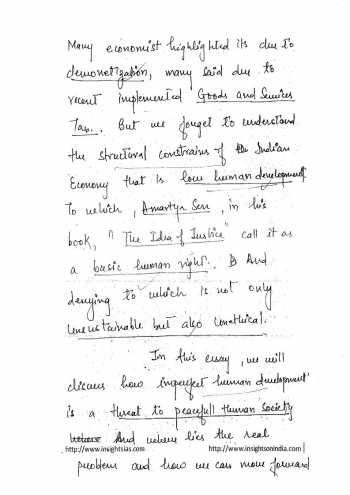 Many economist highlighted its due to
demonetization, many said due to
recent implemented Goods and Services
Tax. But we forget to understand
the structural constrains of the Indian
Economy that is low human development
to which, Amartya Sen, in his
book, "The Idea of Justice" call it as
a basic human right. And
denying to which is not only
unsustainable but also unethical.
In this essay, we will
discuss how imperfect human development
is a threat to peacefull Human Society
And where lies the real
http://www.insightsias.com http://www.insightsonindia.com |
problem and how we can move forward